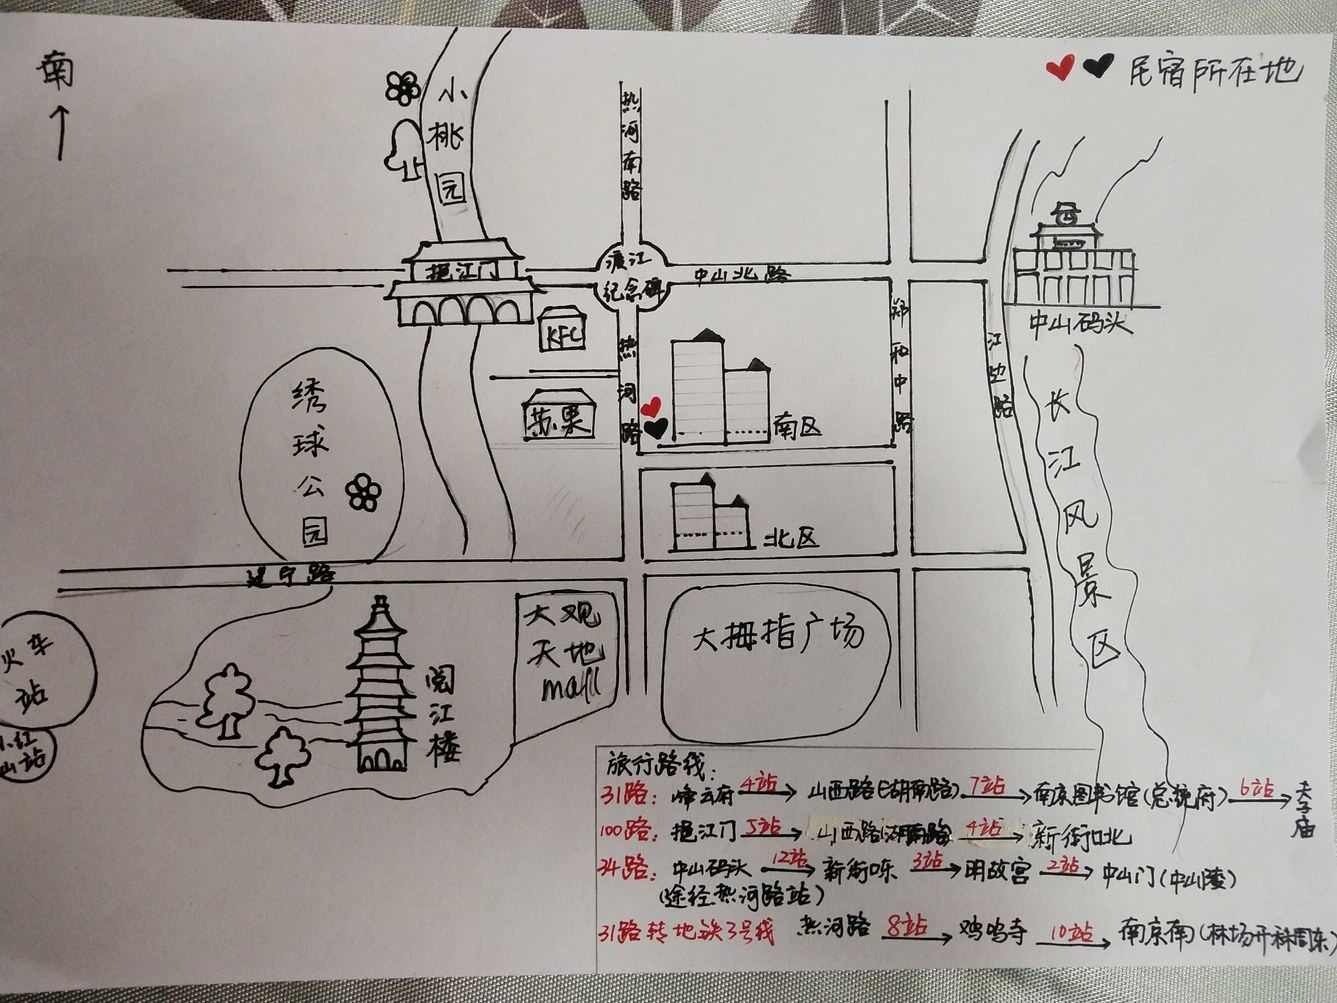 南
民宿所在地
小桃园
热河南路
挹江门
渡江
纪念碑
中山北路
中山码头
KFC
热河路
苏果
南区
郑和中路
江边路
长江风景区
绣球公园
北区
建宁路
火车
站
小红
山站
阅江楼
大观
天地
mall
大拇指广场
旅行路线:
31路: 峰云府 4站 山西路(湖南路) 7站 南京图书馆(总统府) 6站 夫子庙
100路: 挹江门 5站 山西路湖南路 4站 新街口北
34路: 中山码头 12站 新街口东 3站 明故宫 2站 中山门(中山陵)
(途经热河路站)
31路转地铁3号线 热河路 8站 鸡鸣寺 10站 南京南(林场开秣周东)